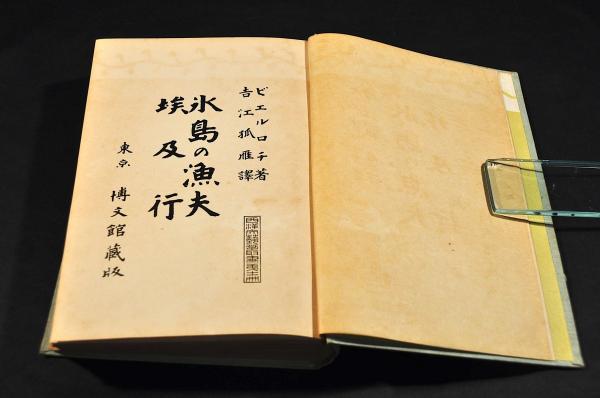 ピエルロチ著
吉江孤雁譯
氷島の漁夫
埃及行
西洋文藝叢書
東京 博文館藏版